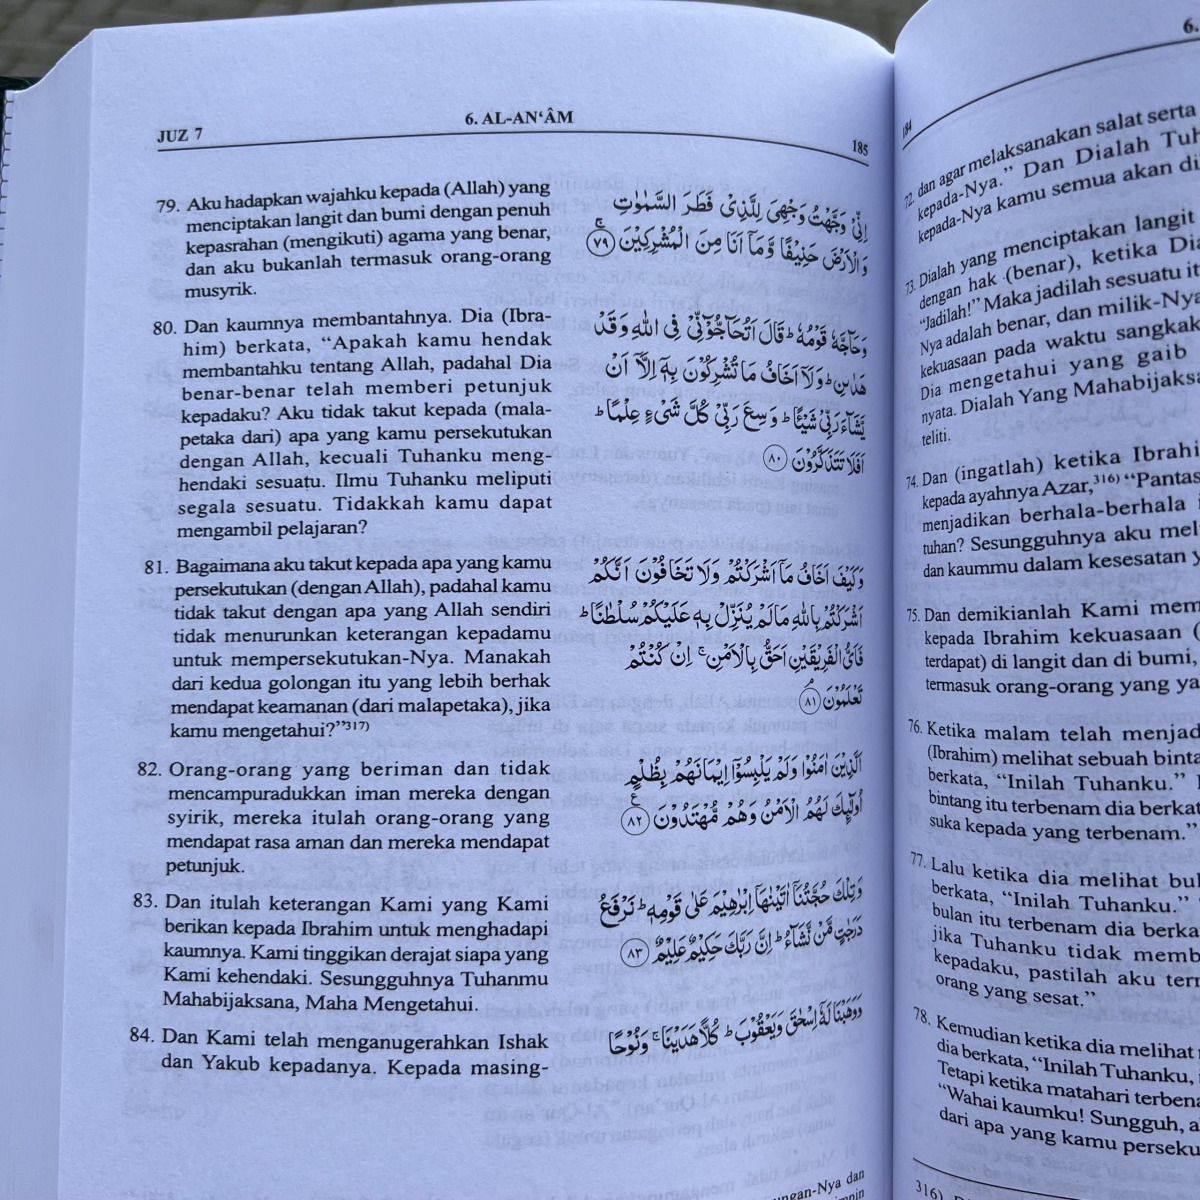 JUZ 7
6. AL-AN‘ÂM
185
79. Aku hadapkan wajahku kepada (Allah) yang
menciptakan langit dan bumi dengan penuh
kepasrahan (mengikuti) agama yang benar,
dan aku bukanlah termasuk orang-orang
musyrik.
اِنِّيْ وَجَّهْتُ وَجْهِيَ لِلَّذِيْ فَطَرَ السَّمٰوٰتِ
وَالْاَرْضَ حَنِيْفًا وَّمَآ اَنَا۠ مِنَ الْمُشْرِكِيْنَۚ ٧٩
80. Dan kaumnya membantahnya. Dia (Ibra-
him) berkata, “Apakah kamu hendak
membantahku tentang Allah, padahal Dia
benar-benar telah memberi petunjuk
kepadaku? Aku tidak takut kepada (mala-
petaka dari) apa yang kamu persekutukan
dengan Allah, kecuali Tuhanku meng-
hendaki sesuatu. Ilmu Tuhanku meliputi
segala sesuatu. Tidakkah kamu dapat
mengambil pelajaran?
وَحَاۤجَّهٗ قَوْمُهٗ ۗقَالَ اَتُحَاۤجُّوْۤنِّيْ فِى اللّٰهِ وَقَدْ
هَدٰىنِۗ وَلَآ اَخَافُ مَا تُشْرِكُوْنَ بِهٖٓ اِلَّآ اَنْ
يَّشَاۤءَ رَبِّيْ شَيْـًٔا ۗوَسِعَ رَبِّيْ كُلَّ شَيْءٍ عِلْمًا ۗ
اَفَلَا تَتَذَكَّرُوْنَ ٨٠
81. Bagaimana aku takut kepada apa yang kamu
persekutukan (dengan Allah), padahal kamu
tidak takut dengan apa yang Allah sendiri
tidak menurunkan keterangan kepadamu
untuk mempersekutukan-Nya. Manakah
dari kedua golongan itu yang lebih berhak
mendapat keamanan (dari malapetaka), jika
kamu mengetahui?”317)
وَكَيْفَ اَخَافُ مَآ اَشْرَكْتُمْ وَلَا تَخَافُوْنَ اَنَّكُمْ
اَشْرَكْتُمْ بِاللّٰهِ مَا لَمْ يُنَزِّلْ بِهٖ عَلَيْكُمْ سُلْطٰنًا ۗ
فَاَيُّ الْفَرِيْقَيْنِ اَحَقُّ بِالْاَمْنِۚ اِنْ كُنْتُمْ
تَعْلَمُوْنَۘ ٨١
82. Orang-orang yang beriman dan tidak
mencampuradukkan iman mereka dengan
syirik, mereka itulah orang-orang yang
mendapat rasa aman dan mereka mendapat
petunjuk.
اَلَّذِيْنَ اٰمَنُوْا وَلَمْ يَلْبِسُوْٓا اِيْمَانَهُمْ بِظُلْمٍ
اُولٰۤىِٕكَ لَهُمُ الْاَمْنُ وَهُمْ مُّهْتَدُوْنَ ࣖ ٨٢
83. Dan itulah keterangan Kami yang Kami
berikan kepada Ibrahim untuk menghadapi
kaumnya. Kami tinggikan derajat siapa yang
Kami kehendaki. Sesungguhnya Tuhanmu
Mahabijaksana, Maha Mengetahui.
وَتِلْكَ حُجَّتُنَآ اٰتَيْنٰهَآ اِبْرٰهِيْمَ عَلٰى قَوْمِهٖۗ نَرْفَعُ
دَرَجٰتٍ مَّنْ نَّشَاۤءُۗ اِنَّ رَبَّكَ حَكِيْمٌ عَلِيْمٌ ٨٣
84. Dan Kami telah menganugerahkan Ishak
dan Yakub kepadanya. Kepada masing-
وَوَهَبْنَا لَهٗٓ اِسْحٰقَ وَيَعْقُوْبَۗ كُلًّا هَدَيْنَاۚ وَنُوْحًا
ngan-Nya dan
184
6.
72. dan agar melaksanakan salat serta
kepada-Nya.” Dan Dialah Tuh
kepada-Nya kamu semua akan di
73. Dialah yang menciptakan langit
dengan hak (benar), ketika Dia
“Jadilah!” Maka jadilah sesuatu it
Nya adalah benar, dan milik-Nya
kekuasaan pada waktu sangkak
Dia mengetahui yang gaib
nyata. Dialah Yang Mahabijaksa
teliti.
74. Dan (ingatlah) ketika Ibrahi
kepada ayahnya Azar,316) “Pantas
menjadikan berhala-berhala
tuhan? Sesungguhnya aku mel
dan kaummu dalam kesesatan y
75. Dan demikianlah Kami mem
kepada Ibrahim kekuasaan (
terdapat) di langit dan di bumi,
termasuk orang-orang yang ya
76. Ketika malam telah menjad
(Ibrahim) melihat sebuah binta
berkata, “Inilah Tuhanku.”
bintang itu terbenam dia berkat
suka kepada yang terbenam.”
77. Lalu ketika dia melihat bul
berkata, “Inilah Tuhanku.”
bulan itu terbenam dia berka
jika Tuhanku tidak memb
kepadaku, pastilah aku term
orang yang sesat.”
78. Kemudian ketika dia melihat
dia berkata, “Inilah Tuhanku,
Tetapi ketika matahari terbena
“Wahai kaumku! Sungguh, a
dari apa yang kamu perseku
316)